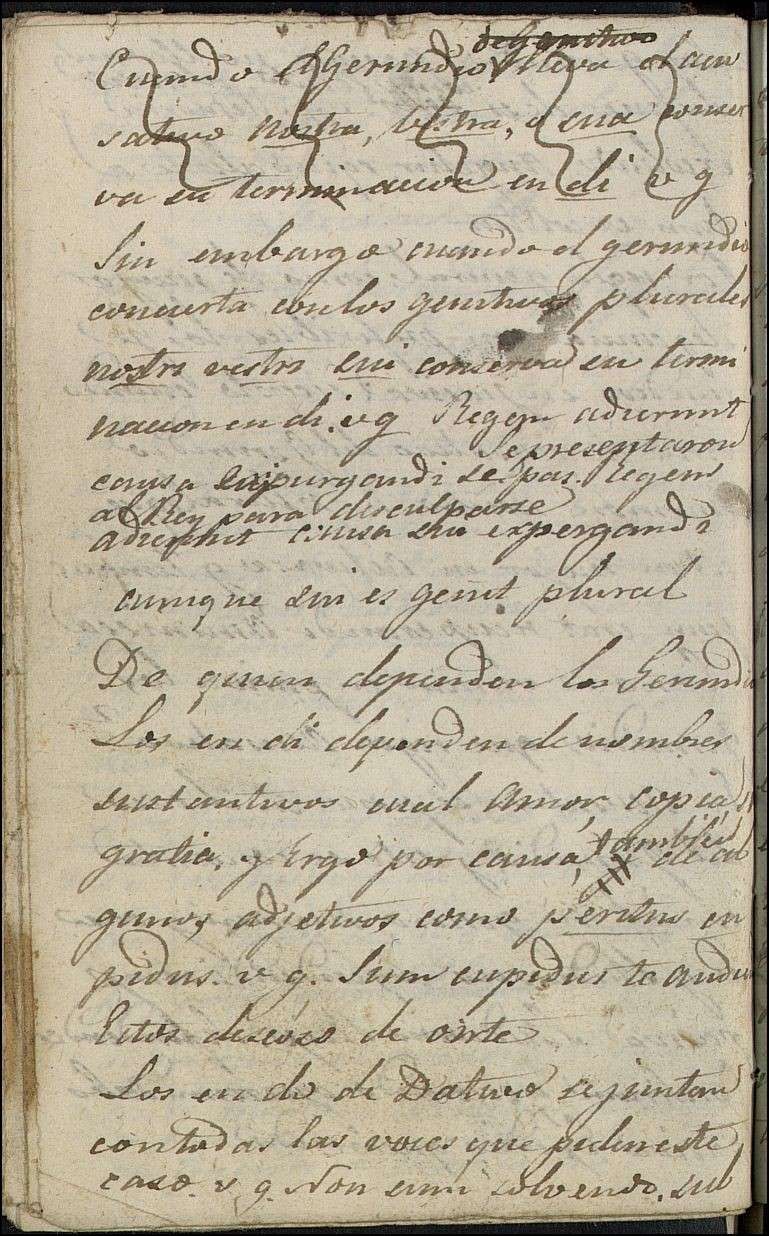 de Genitivo
Cuando el Gerundio lleva el acu
sativo nostra, vestra, o sua conser
va su terminacion en di v g
Sin embargo cuando el gerundio
concierta con los genitivos plurales
nostri vestri sui conserva su termi
nacion en di. v g Regem adierunt
se presentaron
causa expurgandi se. Regem
al Rey para disculparse
adierunt causa sui expurgandi
aunque sui es genit plural
De quien dependen los Gerundio
Los en di dependen de nombres
sustantivos cual Amor, copia,
gratia, y Ergo por causa, tambien de al
gunos adjetivos como peritus cu
pidus. v g. Sum cupidus te audi
Estoy deseoso de oirte
Los en do de Dativo se juntan
con todas las voces que piden este
caso. v g. Non sum solvendo. sub